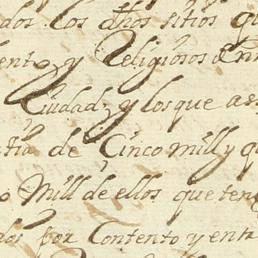 dos. los dhos sitios q
ento, y Religiosos
Ciudad, y los que as
tia de Cinco mill y q
Mill de ellos que ten
dos por Contento y ent